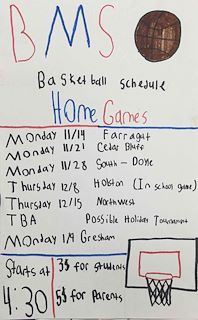 BMS
Basketball schedule
Home Games
Monday 11/14 Farragut
Monday 11/21 Cedar Bluff
Monday 11/28 South-Doyle
Thursday 12/8 Holston (In school game)
Thursday 12/15 Northwest
TBA Possible Holiday Tournament
Monday 1/9 Gresham
Starts at
4:30
3$ for students
5$ for Parents